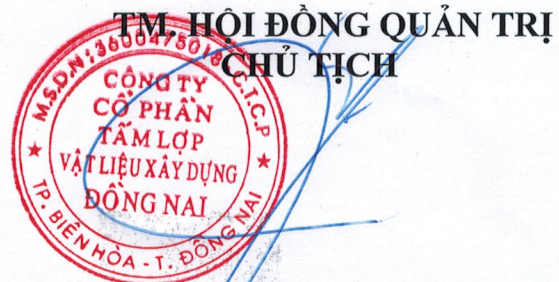 TM. HỘI ĐỒNG QUẢN TRỊ
CHỦ TỊCH
M.S.D.N: 3600475018 C.T.C.P
CÔNG TY
CỔ PHẦN
TẤM LỢP
VẬT LIỆU XÂY DỰNG
ĐỒNG NAI
TP. BIÊN HÒA - T. ĐỒNG NAI